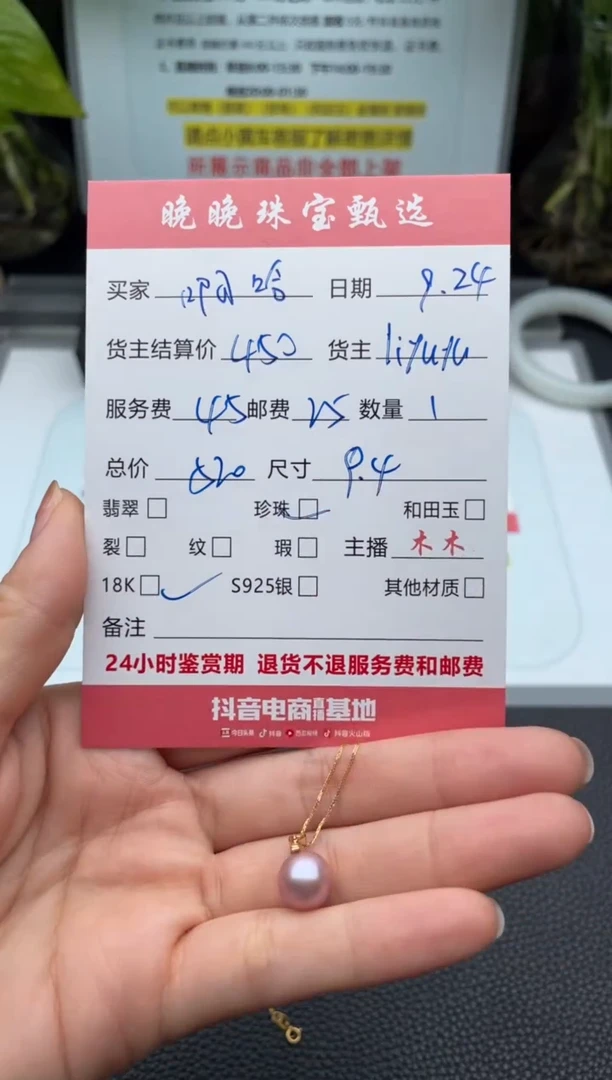 请点小黄车客服了解更多详情
所展示商品非全部上架
晚晚珠宝甄选
买家 哈 日期 9.24
货主结算价 450 货主 liyuyu
服务费 45 邮费 25 数量 1
总价 520 尺寸 9.4
翡翠 珍珠 和田玉
裂 纹 瑕 主播 木木
18K S925银 其他材质
备注
24小时鉴赏期 退货不退服务费和邮费
抖音电商直播基地
今日头条 抖音 西瓜视频 抖音火山版